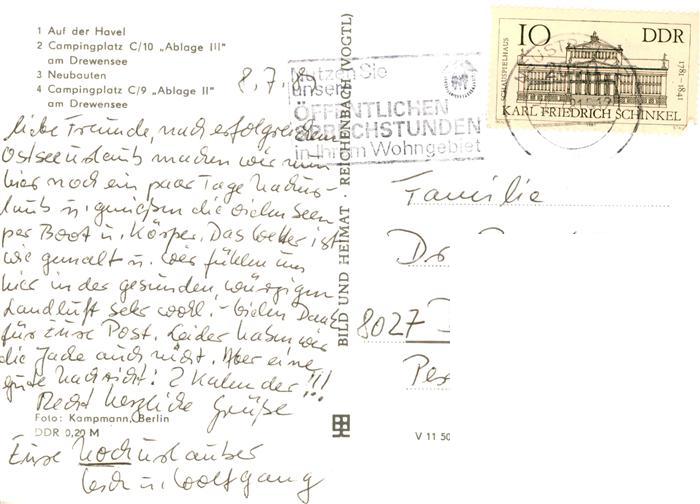 1 Auf der Havel
2 Campingplatz C/10 „Ablage III"
am Drewensee
3 Neubauten
4 Campingplatz C/9 „Ablage II"
am Drewensee
8.7.
Liebe Freunde, nach erfolgreichem
Ostseeurlaub machen wir nun
hier noch ein paar Tage Nachur-
laub u. genießen die vielen Seen
per Boot u. Körper. Das Wetter ist
wie gemalt u. wir fühlen uns
hier in der gesunden, würzigen
Landluft sehr wohl. – Vielen Dank
für Eure Post. Leider haben wir
die Jade auch nicht. Aber eine
gute Nachricht: 2 Kalender!!!
Recht herzliche Grüße
Foto: Kampmann, Berlin
DDR 0,20 M
Eure Nochurlauber
u. Wolfgang
BILD UND HEIMAT · REICHENBACH (VOGTL)
V 11 50
Nutzen Sie
unsere
ÖFFENTLICHEN
SPRECHSTUNDEN
in Ihrem Wohngebiet
10 DDR
SCHAUSPIELHAUS
1781–1841
KARL FRIEDRICH SCHINKEL
Familie
Dr
8027